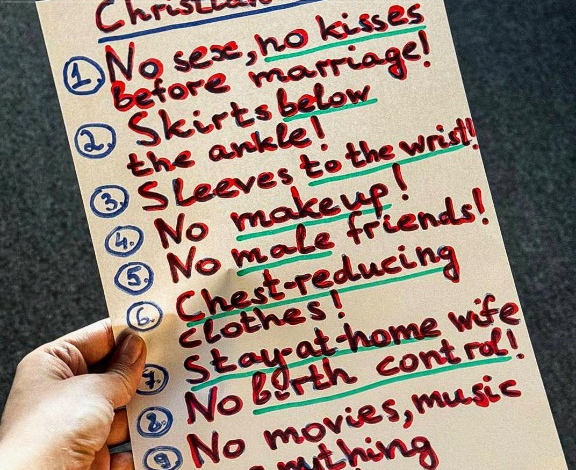 Christian
1. No sex, no kisses
before marriage!
2. Skirts below
the ankle!
3. Sleeves to the wrist!
4. No makeup!
5. No male friends!
6. Chest-reducing
clothes!
7. Stay-at-home wife
8. No birth control!
9. No movies, music